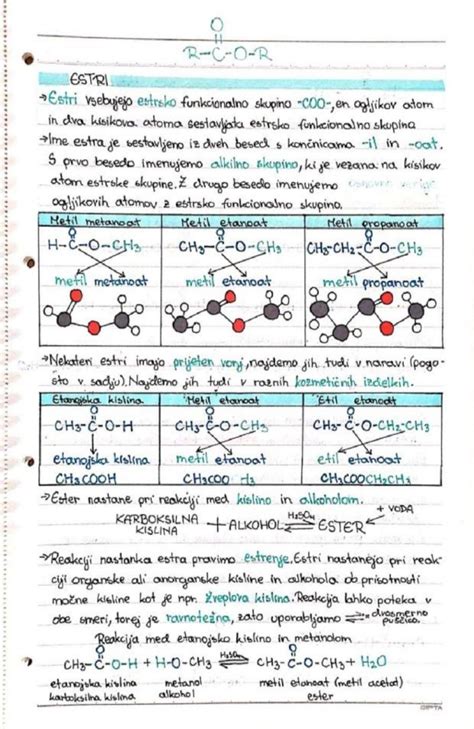 O
||
R-C-O-R
ESTRI
→Estri vsebujejo estrsko funkcionalno skupino -COO-, en ogljikov atom
in dva kisikova atoma sestavljata estrsko funkcionalno skupino
→Ime estra je sestavljeno iz dveh besed s končnicama -il in -oat.
S prvo besedo imenujemo alkilno skupino, ki je vezana na kisikov
atom estrske skupine. Z drugo besedo imenujemo
ogljikovih atomov z estrsko funkcionalno skupino.
Metil metanoat Metil etanoat Metil propanoat
O O O
H-C-O-CH3 CH3-C-O-CH3 CH3-CH2-C-O-CH3
metil metanoat metil etanoat metil propanoat
→Nekateri estri imajo prijeten vonj, najdemo jih tudi v naravi (pogo-
sto v sadju). Najdemo jih tudi v raznih kozmetičnih izdelkih.
Etanojska kislina Metil etanoat Etil etanoat
O O O
CH3-C-O-H CH3-C-O-CH3 CH3-C-O-CH2-CH3
etanojska kislina metil etanoat etil etanoat
CH3COOH CH3COO CH3COOCH2CH3
→Ester nastane pri reakciji med kislino in alkoholom.
KARBOKSILNA KISLINA + ALKOHOL H2SO4 ⇌ ESTER + VODA
→Reakciji nastanka estra pravimo estrenje. Estri nastanejo pri reak-
ciji organske ali anorganske kisline in alkohola ob prisotnosti
močne kisline kot je npr. žveplova kislina. Reakcija lahko poteka v
obe smeri, torej je ravnotežna, zato uporabljamo ⇌ →dvosmerno
puščico.
Reakcija med etanojsko kislino in metanolom
O O
CH3-C-O-H + H-O-CH3 H2SO4 ⇌ CH3-C-O-CH3 + H2O
etanojska kislina metanol metil etanoat (metil acetat)
karboksilna kislina alkohol ester